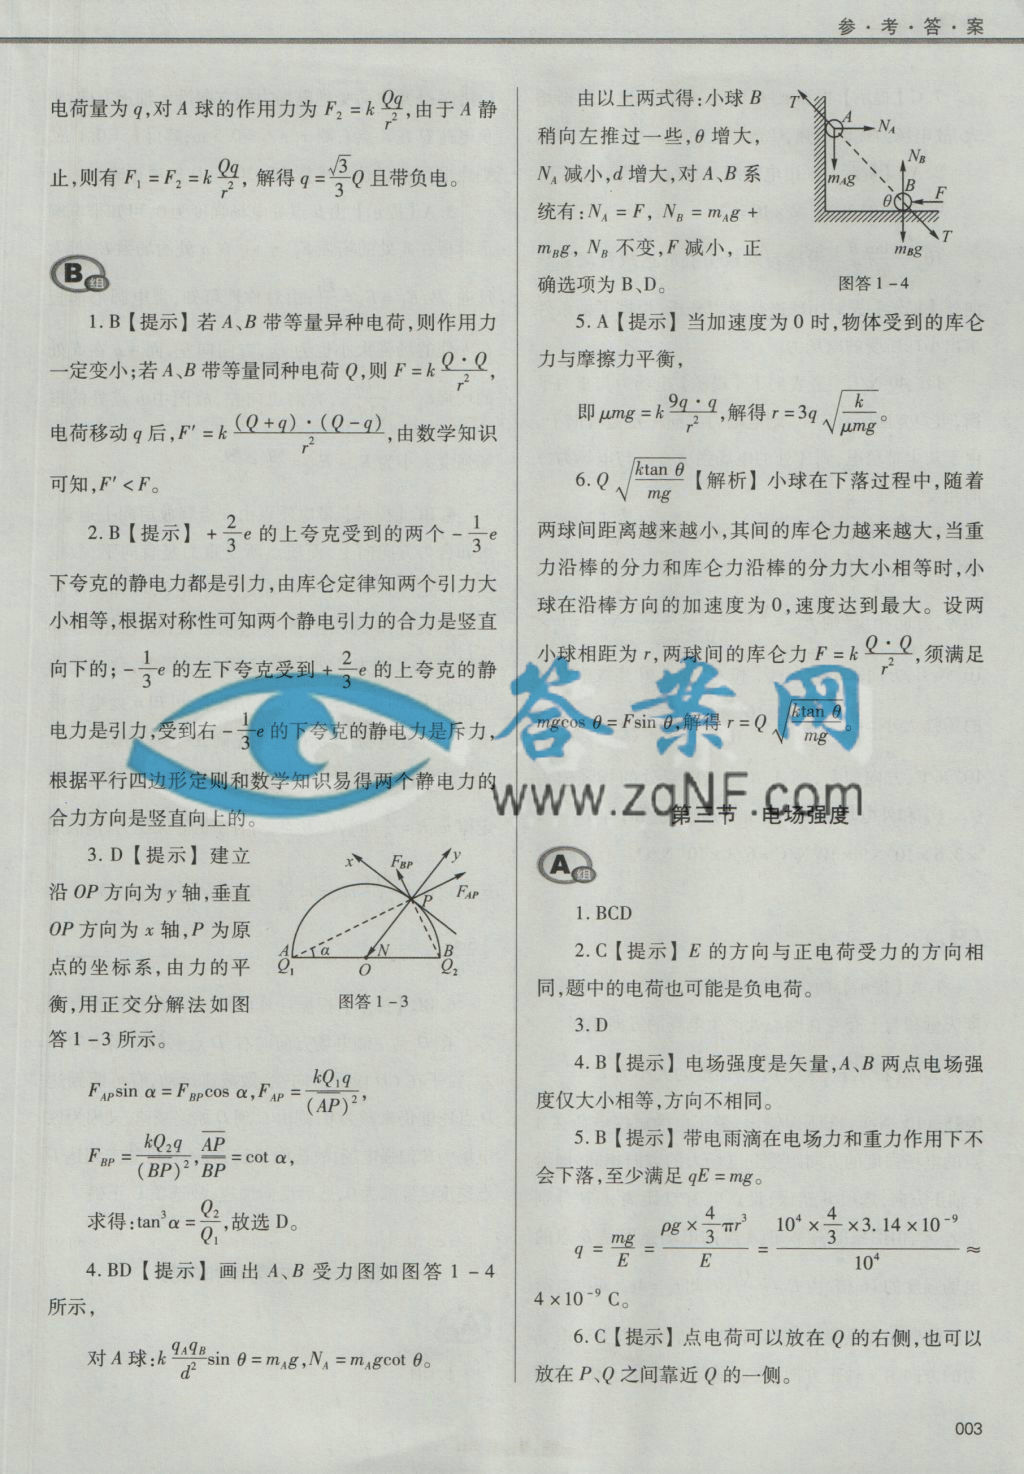 参·考·答·案
电荷量为 q,对 A 球的作用力为 F₂ = k Qq/r²,由于 A 静
止,则有 F₁ = F₂ = k Qq/r², 解得 q = √3/3 Q 且带负电。
B组
1. B【提示】若 A、B 带等量异种电荷,则作用力
一定变小;若 A、B 带等量同种电荷 Q,则 F = k Q·Q/r²,
电荷移动 q 后,F′ = k (Q+q)·(Q−q)/r²,由数学知识
可知,F′ < F。
2. B【提示】 +2/3 e 的上夸克受到的两个 −1/3 e
下夸克的静电力都是引力,由库仑定律知两个引力大
小相等,根据对称性可知两个静电引力的合力是竖直
向下的; −1/3 e 的左下夸克受到 +2/3 e 的上夸克的静
电力是引力,受到右 −1/3 e 的下夸克的静电力是斥力,
根据平行四边形定则和数学知识易得两个静电力的
合力方向是竖直向上的。
3. D【提示】建立
沿 OP 方向为 y 轴,垂直
OP 方向为 x 轴,P 为原
点的坐标系,由力的平
衡,用正交分解法如图
答 1 − 3 所示。
x F_BP y
F_AP
P
A α N B
Q₁ O Q₂
图答 1 − 3
F_AP sin α = F_BP cos α, F_AP = kQ₁q/(AP)²,
F_BP = kQ₂q/(BP)², AP/BP = cot α,
求得:tan³α = Q₂/Q₁,故选 D。
4. BD【提示】画出 A、B 受力图如图答 1 − 4
所示,
对 A 球:k q_A q_B/d² sin θ = m_A g, N_A = m_A g cot θ。
由以上两式得:小球 B
稍向左推过一些,θ 增大,
N_A 减小,d 增大,对 A、B 系
统有:N_A = F, N_B = m_A g +
m_B g, N_B 不变,F 减小, 正
确选项为 B、D。
T A N_A
N_B
m_A g
B
θ F
T
m_B g
图答 1 − 4
5. A【提示】当加速度为 0 时,物体受到的库仑
力与摩擦力平衡,
即 μmg = k 9q·q/r²,解得 r = 3q √(k/μmg)。
6. Q √(ktan θ/mg)【解析】小球在下落过程中,随着
两球间距离越来越小,其间的库仑力越来越大,当重
力沿棒的分力和库仑力沿棒的分力大小相等时,小
球在沿棒方向的加速度为 0,速度达到最大。设两
小球相距为 r,两球间的库仑力 F = k Q·Q/r²,须满足
mgcos θ = Fsin θ,解得 r = Q √(ktan θ/mg)。
答案网
www.zqNF.com
第三节 电场强度
A组
1. BCD
2. C【提示】E 的方向与正电荷受力的方向相
同,题中的电荷也可能是负电荷。
3. D
4. B【提示】电场强度是矢量,A、B 两点电场强
度仅大小相等,方向不相同。
5. B【提示】带电雨滴在电场力和重力作用下不
会下落,至少满足 qE = mg。
q = mg/E = (ρg × 4/3 πr³)/E = (10⁴ × 4/3 × 3.14 × 10⁻⁹)/10⁴ ≈
4 × 10⁻⁹ C。
6. C【提示】点电荷可以放在 Q 的右侧,也可以
放在 P、Q 之间靠近 Q 的一侧。
003